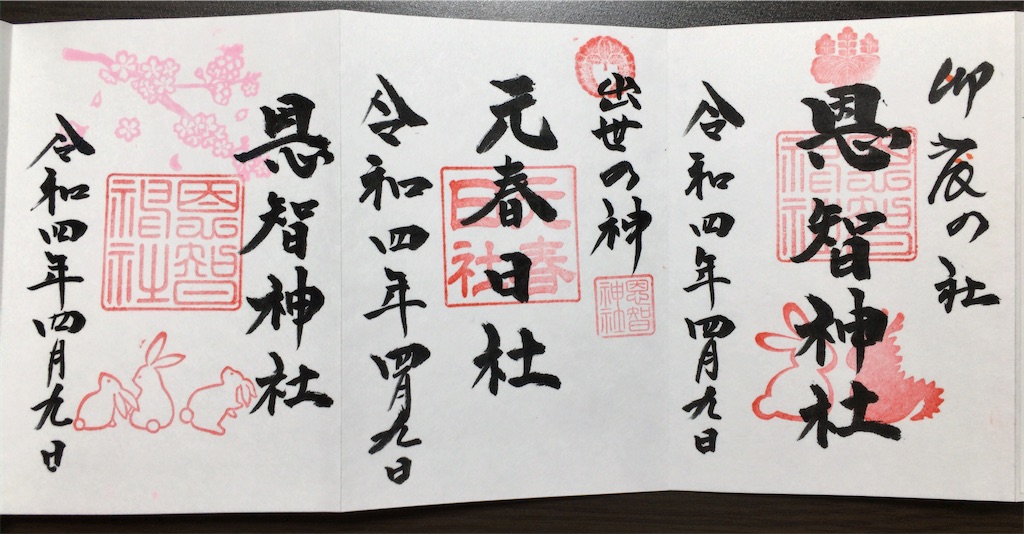 卯辰の社
恩智神社
恩智神社
令和四年四月九日
出世の神
恩智神社
元春日社
元春日社
令和四年四月九日
恩智神社
恩智神社
令和四年四月九日